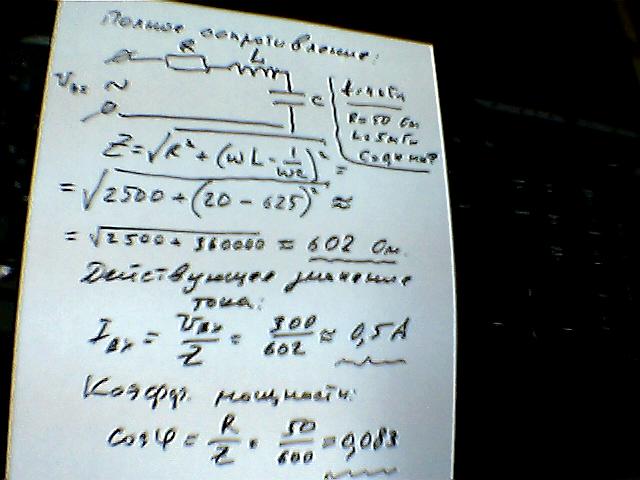 Полное сопротивление:
R L
Uвх ~
C
R = 50 Ом
L = 5 мГн
Z = √R² + (ωL - 1/ωC)² =
= √2500 + (20 - 625)² ≈
= √2500 + 360000 ≈ 602 Ом.
Действующее значение
тока:
Iвх = Uвх/Z = 300/602 ≈ 0,5 А
Коэфф. мощности:
cosφ = R/Z = 50/600 = 0,083